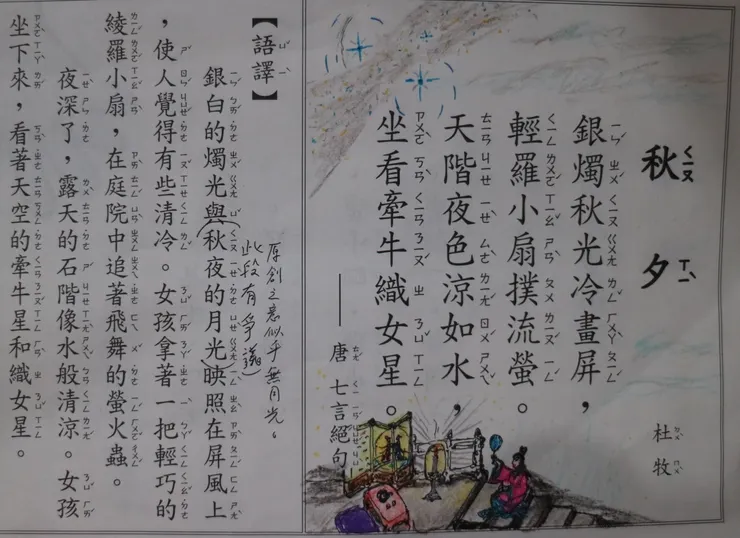 秋夕
杜牧
銀燭秋光冷畫屏，
輕羅小扇撲流螢。
天階夜色涼如水，
坐看牽牛織女星。
——唐 七言絕句
【語譯】
銀白的燭光與秋夜的月光映照在屏風上
原創之意似乎無月光。
此段有爭議
，使人覺得有些清冷。女孩拿著一把輕巧的
綾羅小扇，在庭院中追著飛舞的螢火蟲。
夜深了，露天的石階像水般清涼。女孩
坐下來，看著天空的牽牛星和織女星。